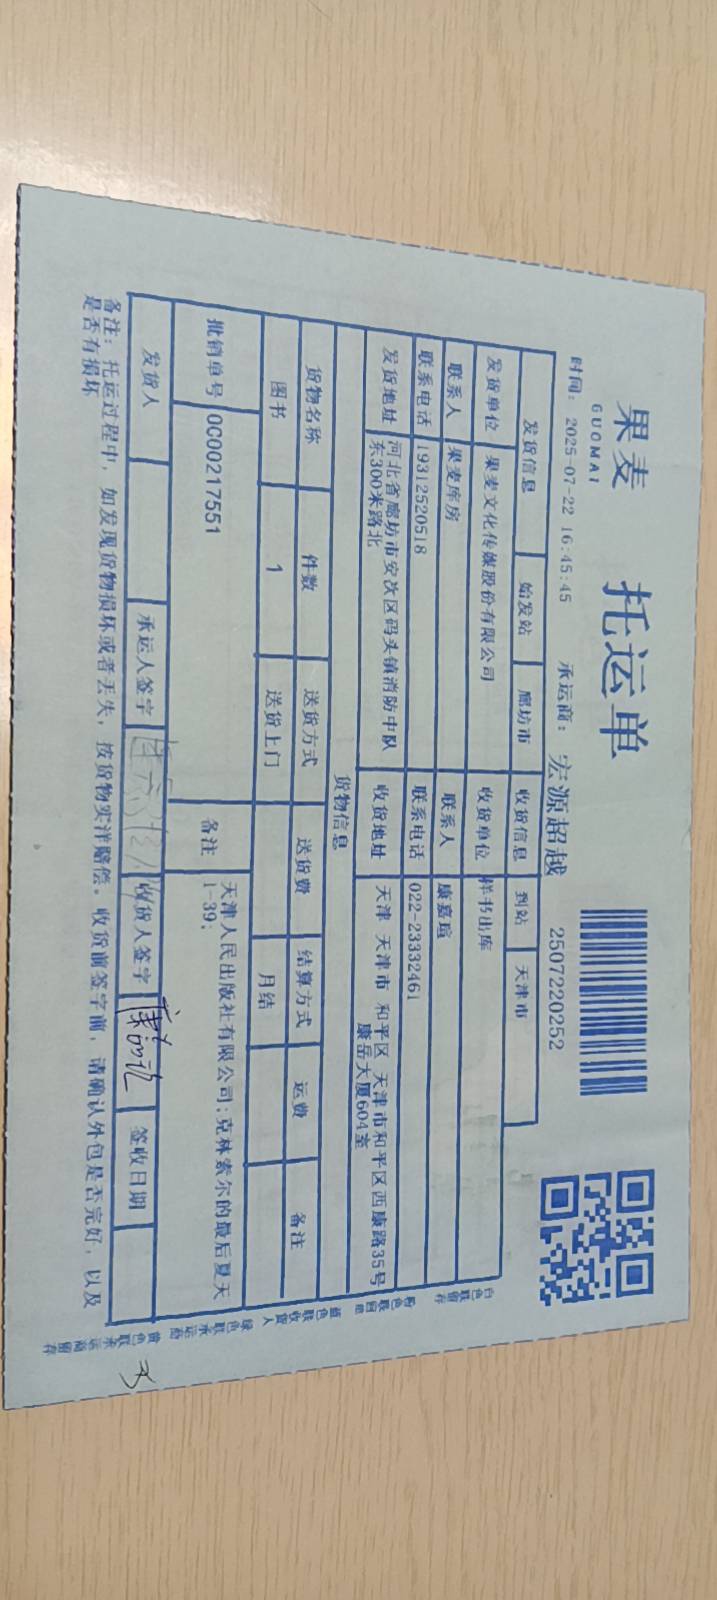 果麦
GUOMAI
托运单
时间: 2025-07-22 16:45:45 承运商: 宏源超越 2507220252
发货信息 始发站 廊坊市 收货信息 到站 天津市
发货单位 果麦文化传媒股份有限公司 收货单位 样书出库
联系人 果麦库房 联系人 康嘉瑄
联系电话 19312520518 联系电话 022-23332461
发货地址 河北省廊坊市安次区码头镇消防中队东300米路北 收货地址 天津 天津市 和平区 天津市和平区西康路35号康岳大厦604室
货物信息
货物名称 件数 送货方式 送货费 结算方式 运费 备注
图书 1 送货上门 月结
批销单号 0C00217551 备注 天津人民出版社有限公司;克林索尔的最后夏天
1-39;
发货人 承运人签字 收货人签字 签收日期
备注: 托运过程中, 如发现货物损坏或者丢失, 按货物实洋赔偿。收货前签字前, 请确认外包是否完好, 以及
是否有损坏
白色联留存
粉色联回单
蓝色联收货人
绿色联承运商
黄色联承运商留存